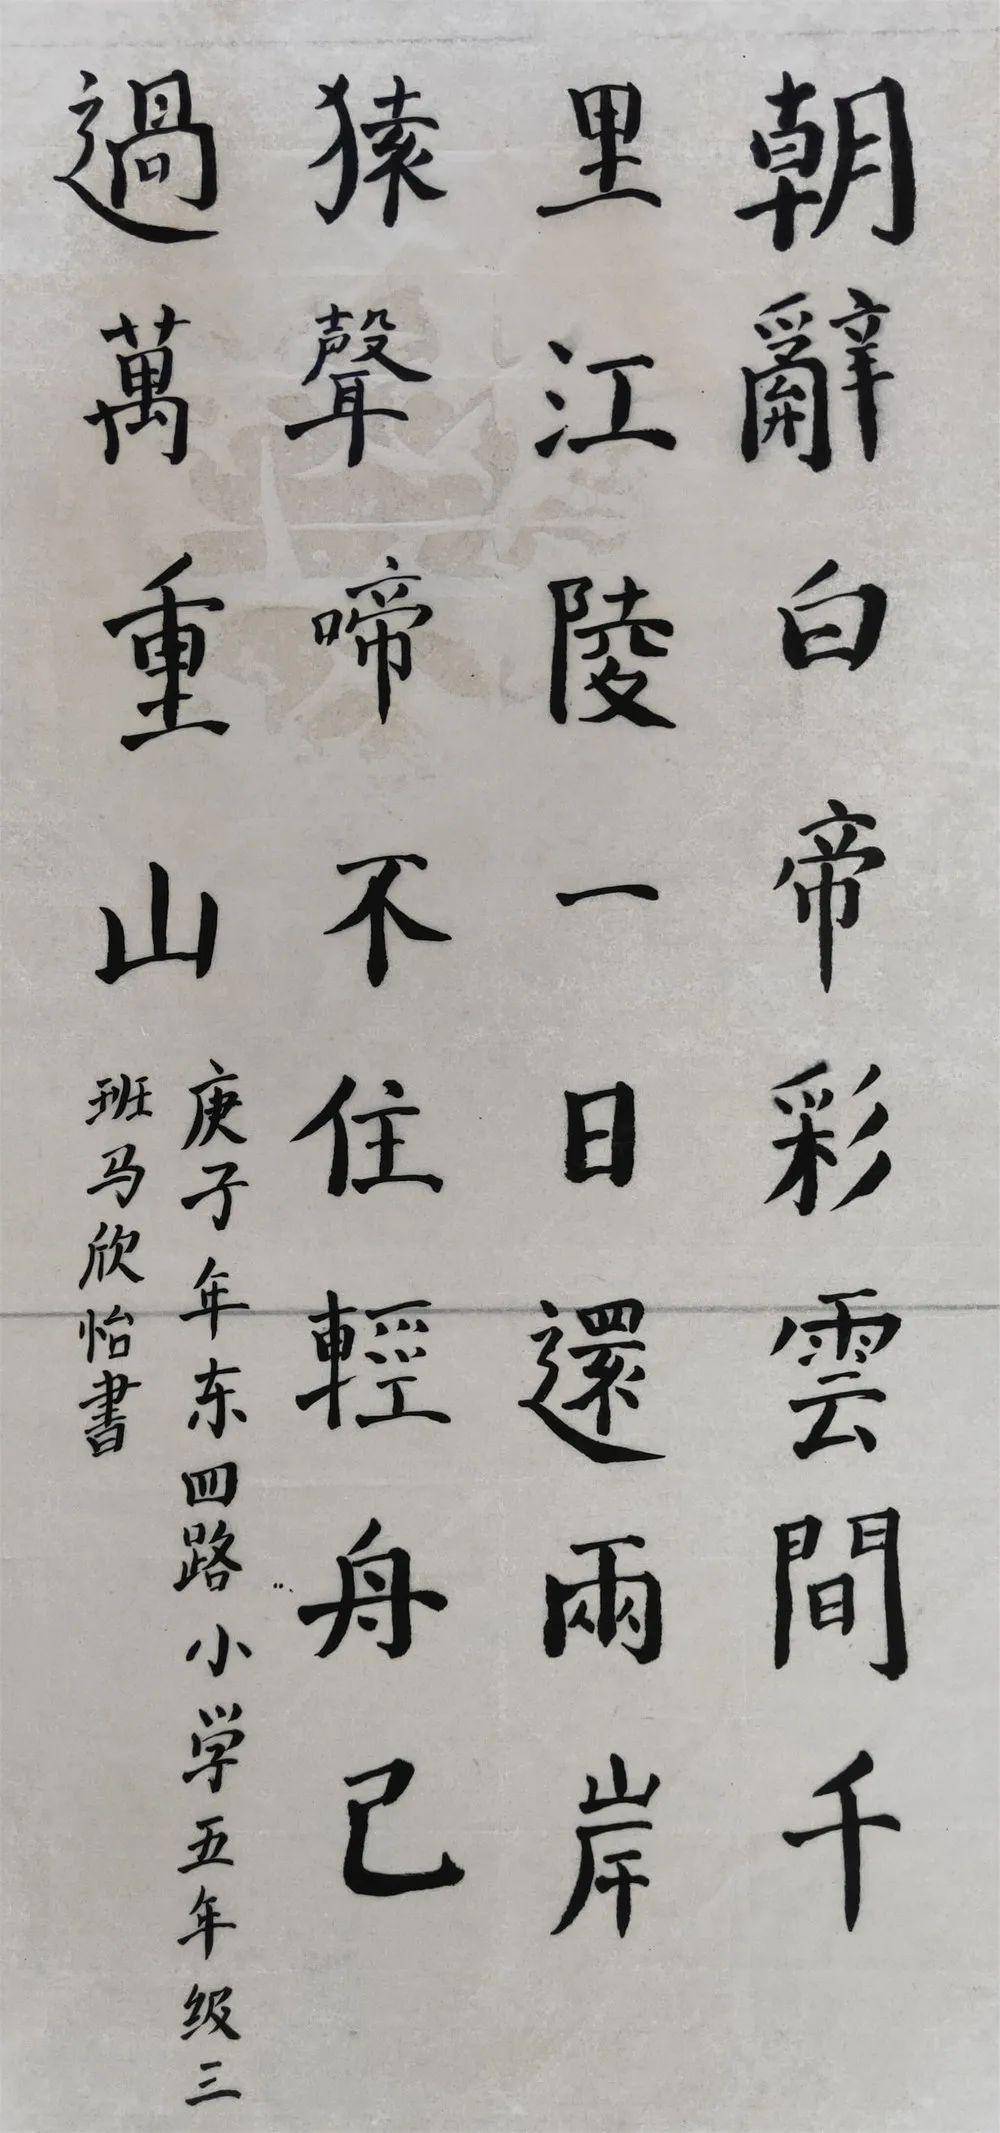 朝辭白帝彩雲間千
里江陵一日還兩岸
猿聲啼不住輕舟已
過萬重山
庚子年东四路小学五年级三
班马欣怡書